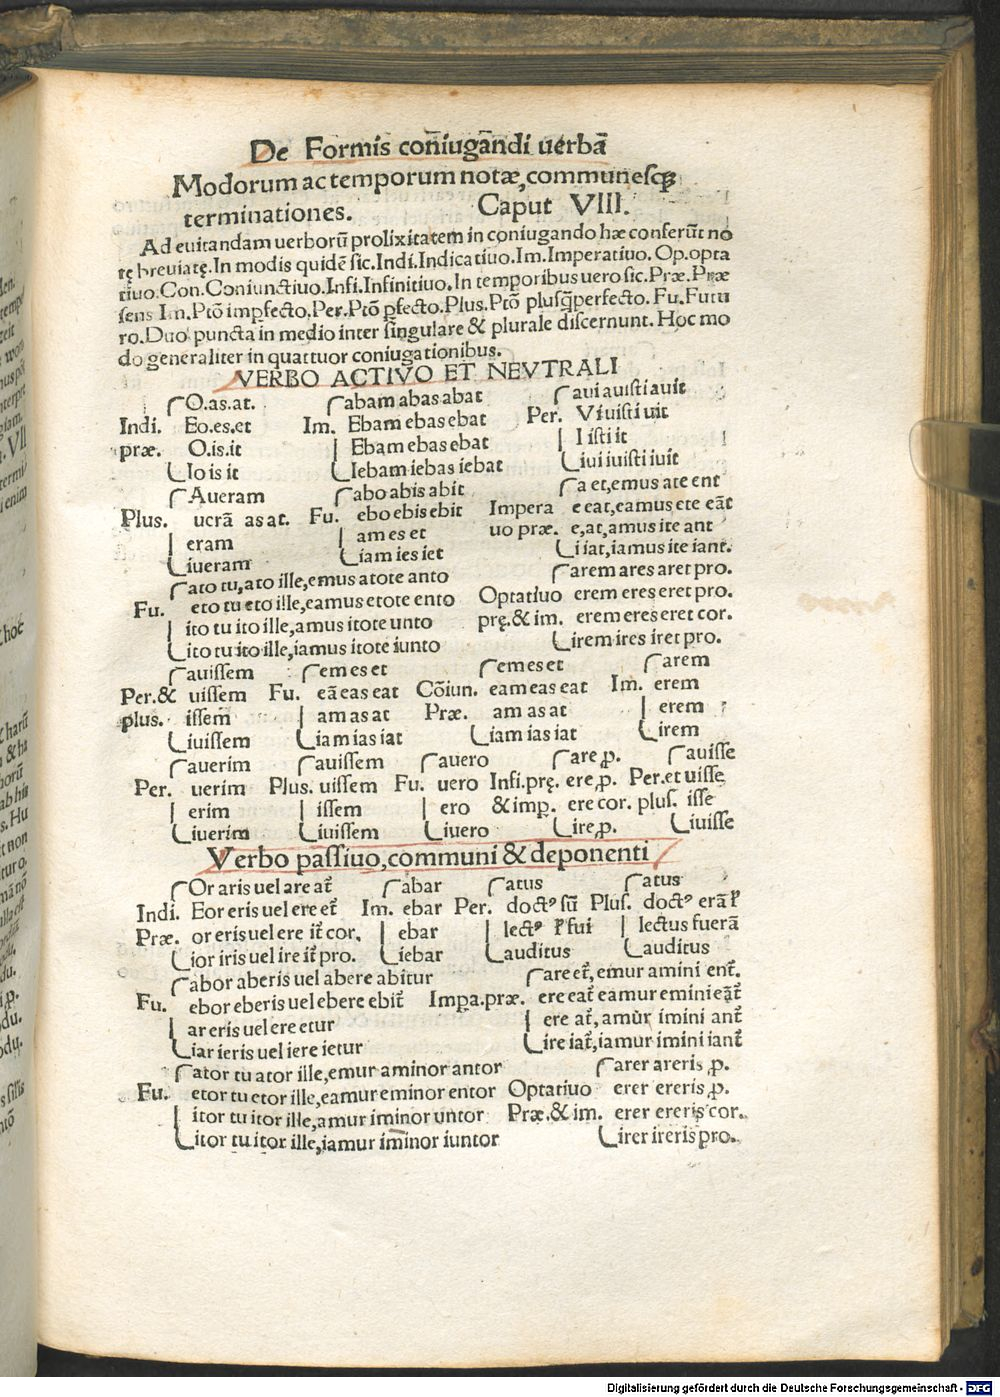 De Formis cōniugādi uerbā
Modorum ac temporum notæ,communesq;
terminationes. Caput VIII.
Ad euitandam uerborū prolixitatem in coniugando hæ conferūt no
tę breuiatę.In modis quidē sic.Indi.Indicatiuo.Im.Imperatiuo.Op.opta
tiuo.Con.Coniunctiuo.Infi.Infinitiuo.In temporibus uero sic.Præ.Præ
sens Im.Ptō imꝑfecto.Per.Ptō ꝑfecto.Plus.Ptō plusq̄perfecto.Fu.Futu
ro.Duo puncta in medio inter singulare & plurale discernunt.Hoc mo
do generaliter in quattuor coniugationibus.
VERBO ACTIVO ET NEVTRALI
O.as.at. abam abas abat aui auisti auit
Indi. Eo.es.et Im. Ebam ebas ebat Per. Vi uisti uit
præ. O.is.it Ebam ebas ebat I isti it
Io is it Iebam iebas iebat iui iuisti iuit
Aueram abo abis abit a et,emus ate ent
Plus. uerā as at. Fu. ebo ebis ebit Impera e eat,eamus ete eāt
eram am es et uo præ. e,at,amus ite ant
iueram iam ies iet i iat,iamus ite iant.
ato tu,ato ille,emus atote anto arem ares aret pro.
Fu. eto tu eto ille,eamus etote ento Optatiuo erem eres eret pro.
ito tu ito ille,amus itote unto prę.& im. erem eres eret cor.
ito tu ito ille,iamus itote iunto irem ires iret pro.
auissem em es et em es et arem
Per.& uissem Fu. eā eas eat Cōiun. eam eas eat Im. erem
plus. issem am as at Præ. am as at erem
iuissem iam ias iat iam ias iat irem
auerim auissem auero are ꝓ. auisse
Per. uerim Plus. uissem Fu. uero Infi.prę. ere,ꝓ. Per.et uisse
erim issem ero & imp. ere cor. plus. isse
iuerim iuissem iuero ire,ꝓ. iuisse
Verbo passiuo,communi & deponenti
Or aris uel are at᷑ abar atus atus
Indi. Eor eris uel ere et᷑ Im. ebar Per. doctꝰ sū Plus. doctꝰ erā ł
Præ. or eris uel ere it᷑ cor. ebar lectꝰ ł fui lectus fuerā
ior iris uel ire it᷑ pro. iebar auditus auditus
abor aberis uel abere abitur are et᷑,emur amini ent᷑.
Fu. ebor eberis uel ebere ebit᷑ Impa.præ. ere eat᷑ eamur emini eāt᷑
ar eris uel ere etur ere at᷑,amur imini ant᷑
iar ieris uel iere ietur ire iat᷑,iamur imini iant᷑
ator tu ator ille,emur aminor antor arer areris ,ꝓ.
Fu. etor tu etor ille,eamur eminor entor Optatiuo erer ereris ,ꝓ.
itor tu itor ille,amur iminor untor Præ.& im. erer ereris cor.
itor tu itor ille,iamur iminor iuntor irer ireris pro.
Digitalisierung gefördert durch die Deutsche Forschungsgemeinschaft - DFG